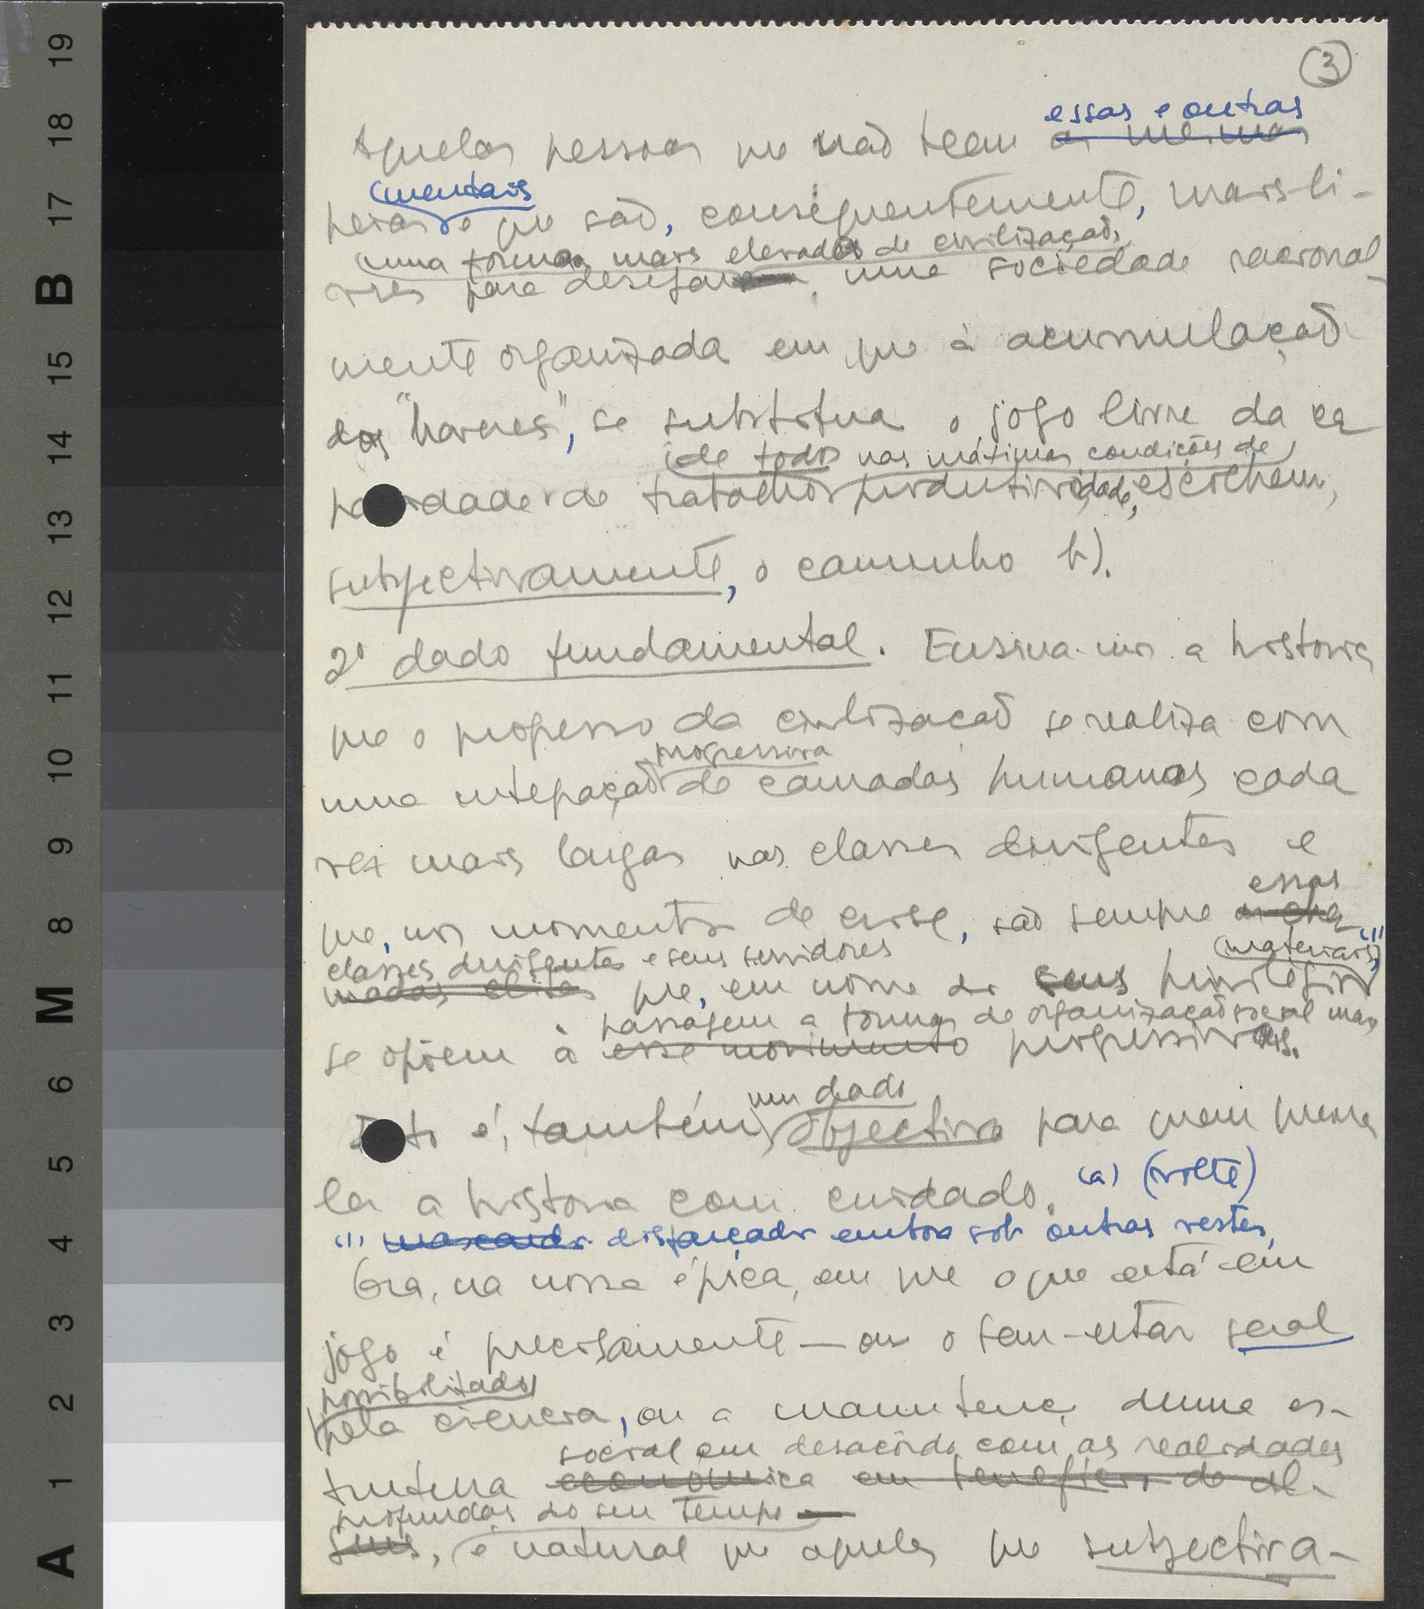 3
essas e outras
Aquelas pessoas que não teem as mesmas
(mentais
peias e que são, consequentemente, mais li-
uma forma mais elevada de civilização,
vres para desejar, uma sociedade racional-
mente organizada em que à acumulação
dos "haveres", se substitua o jogo livre da ca
(de todos nas máximas condições de
pacidade de trabalho produtividade, escolhem,
subjectivamente, o caminho b).
2º dado fundamental. Ensina-nos a historia
que o progresso da civilização se realiza com
progressiva
uma integração de camadas humanas cada
vez mais largas nas classes dirigentes e
essas
que, nos momentos de crise, são sempre as cha
(materiais, (1)
classes dirigentes e seus servidores
madas elites que, em nome de seus privilégios
passagem a formas de organização social mais
se opõem à esse movimento progressivas.
um dado
Isto é, também, objectivo para quem
ler a historia com cuidado. (a) (volte)
(1) mascarados disfarçados embora sob outras vestes,
Ora, na nossa época, em que o que está em
jogo é precisamente — ou o bem-estar geral
possibilitado
pela ciencia, ou a manutenç. duma es-
social em desacôrdo com as realidades
trutura economica em beneficio de al-
profundas do seu tempo —
guns, é natural que aqueles que subjectiva-
19
18
17
B
16
15
14
13
12
11
10
9
8
M
7
6
5
4
3
2
1
A